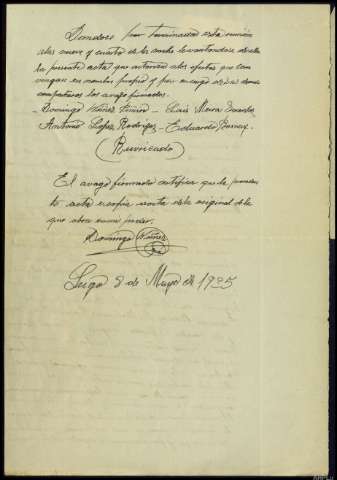 Dandose por terminada esta reunión
a las nueve y cuarto de la noche levantandose de ella
la presente acta que autorizo a los efectos que con
vengan en nombre propio y por encargo de los demas
compañeros los avajo firmados.
- Domingo Núñez - Luis
Antonio Lopez Rodrigez - Eduardo
(Ruvricado)
El avajo firmado, certifica que la preseen
te acta es copia exacta de la original de la
que obra en mi poder.
Domingo Núñez
Lugo 8 de Mayo de 1935
AHPLu